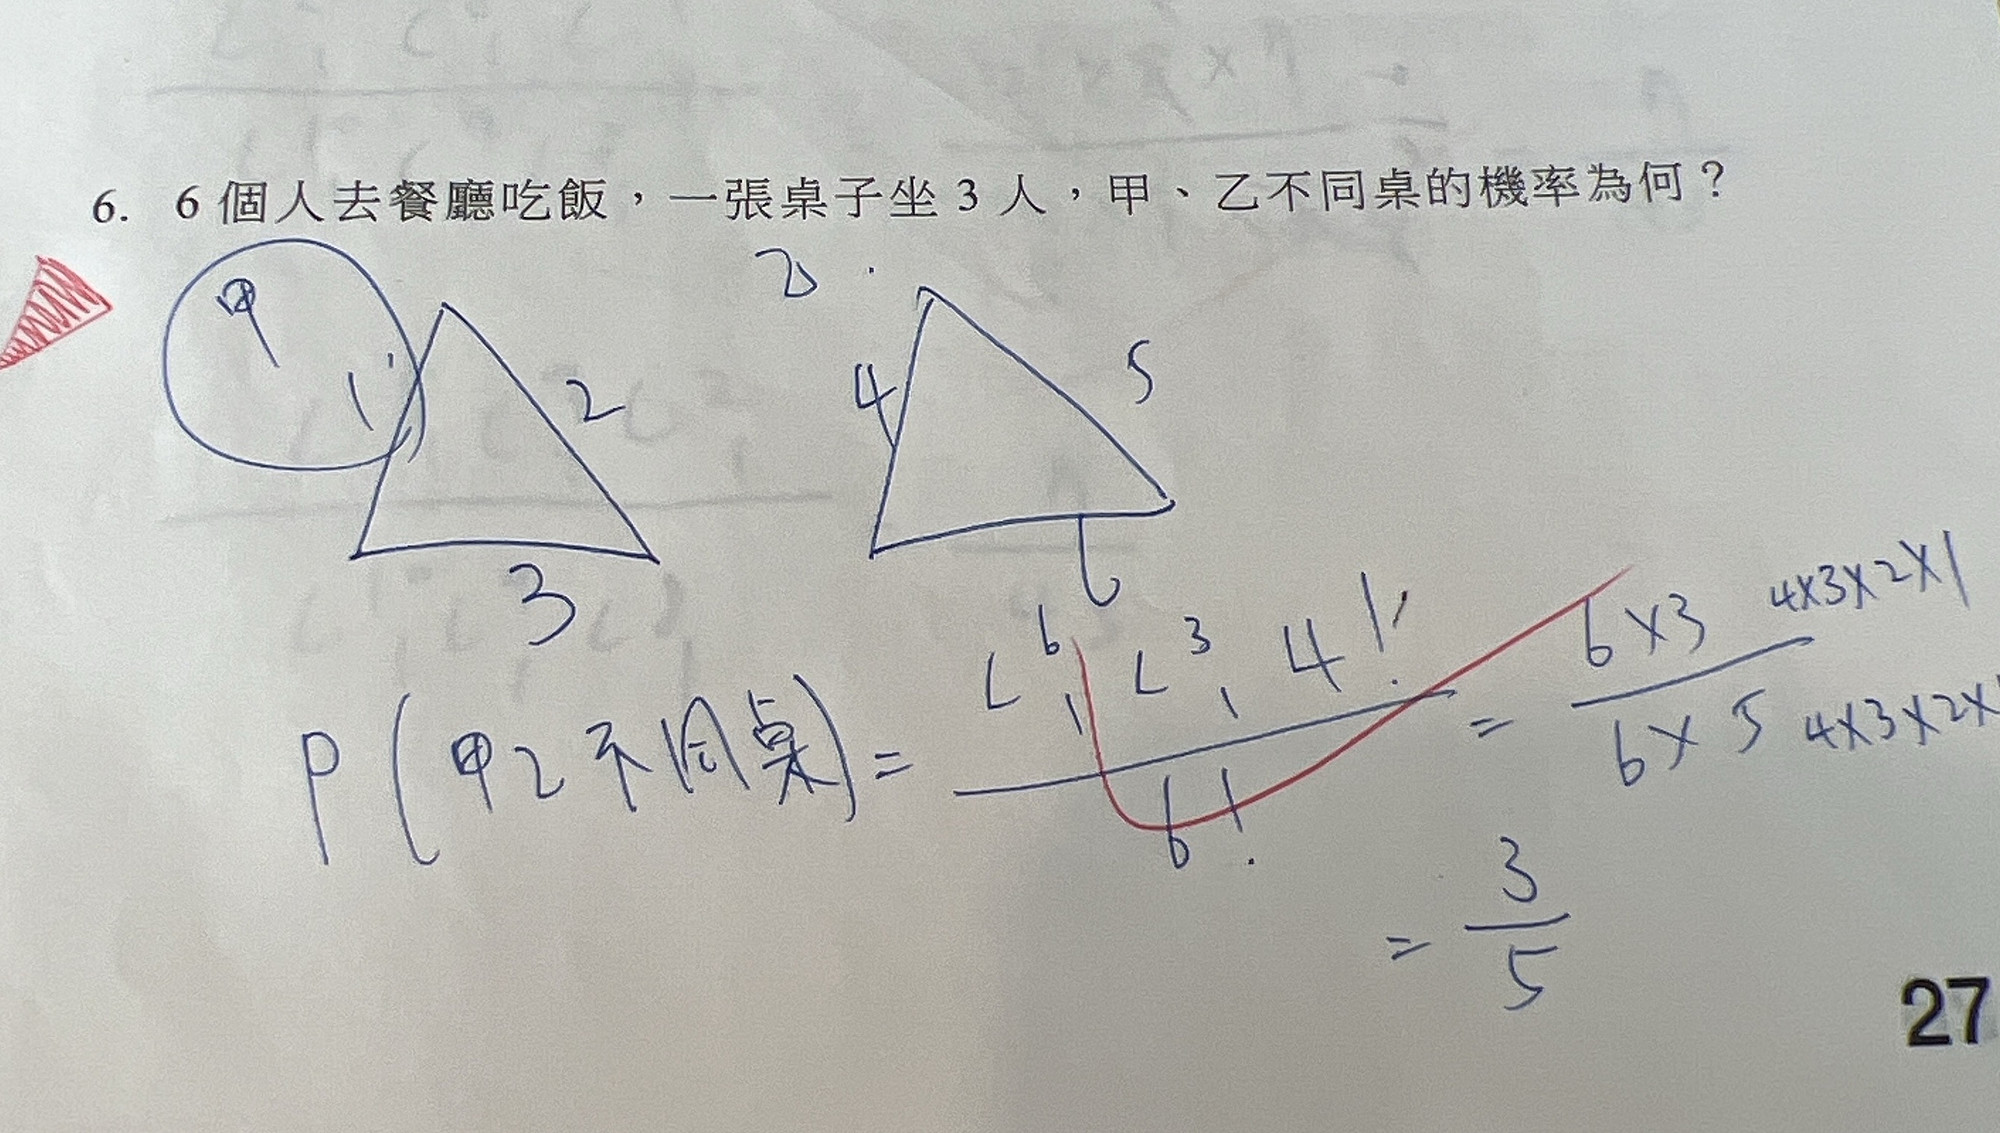 6. 6 個人去餐廳吃飯，一張桌子坐 3 人，甲、乙不同桌的機率為何？
甲 乙
1 2 4 5
3 6
P(甲乙不同桌) = C⁶₁ C³₁ 4! / 6! = 6×3 4×3×2×1 / 6×5 4×3×2×1
= 3/5
27